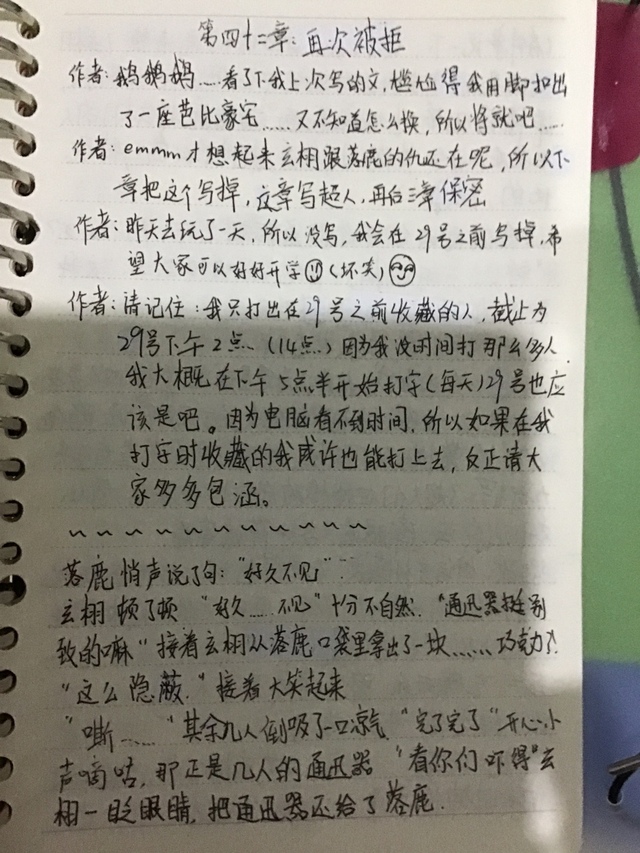 第四十二章:再次被拒
作者:鹅鹅鹅……看了下我上次写的文,尴尬得我用脚扣出
了一座芭比豪宅……又不知道怎么换,所以将就吧……
作者:emmm才想起来玄栩跟落鹿的仇还在呢,所以下
章把这个写掉,这章写超人,再后三章保密
作者:昨天去玩了一天,所以没写,我会在29号之前写掉,希
望大家可以好好开学(坏笑)
作者:请记住:我只打出在29号之前收藏的人,截止为
29号下午2点(14点)因为我没时间打那么多人
我大概在下午5点半开始打字(每天)29号也应
该是吧。因为电脑看不到时间,所以如果在我
打字时收藏的我或许也能打上去,反正请大
家多多包涵。
~~~~~~~~~~~~
落鹿悄声说了句:"好久不见"
玄栩顿了顿"好久……不见"十分不自然."通迅器挺别
致的嘛"接着玄栩从落鹿口袋里拿出了一块……巧克力?
"这么隐蔽."接着大笑起来
"嘶……"其余九人倒吸了一口凉气."完了完了"开心小
声嘀咕,那正是几人的通迅器"看你们吓得"玄
栩一眨眼睛,把通迅器还给了落鹿.